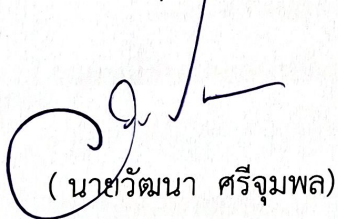 ( นายวัฒนา ศรีจุมพล)